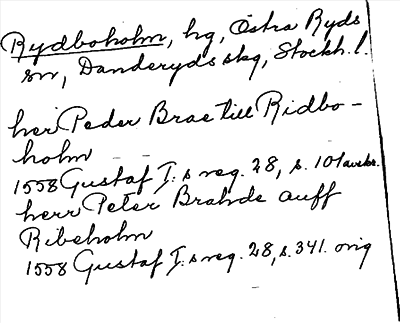 Rydboholm, hg, Östra Ryds
sn, Danderyds skg, Stockh. l.
her Peder Brae till Ridbo-
holm
1558 Gustaf I:s reg. 28, s. 101 avskr.
herr Peter Brahde auff
Ribeholm
1558 Gustaf I:s reg. 28, s. 341. orig